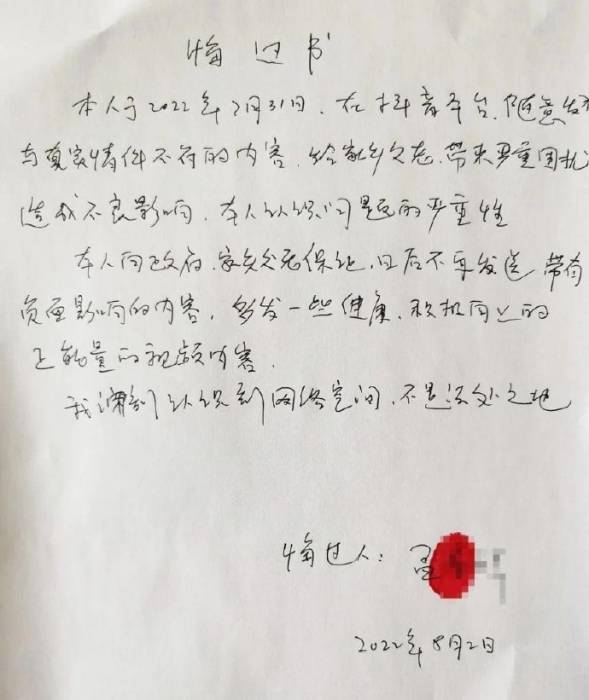 悔过书
本人于2022年7月31日,在抖音平台,随意发
与真实情件不符的内容,给家乡父老,带来严重困扰
造成不良影响,本人认识问题的严重性
本人向政府,家乡父老保证,日后不再发送带有
负面影响的内容,多发一些健康、积极向上的
正能量的视频内容.
我深刻认识到网络空间,不是法外之地
悔过人:孟
2022年8月2日